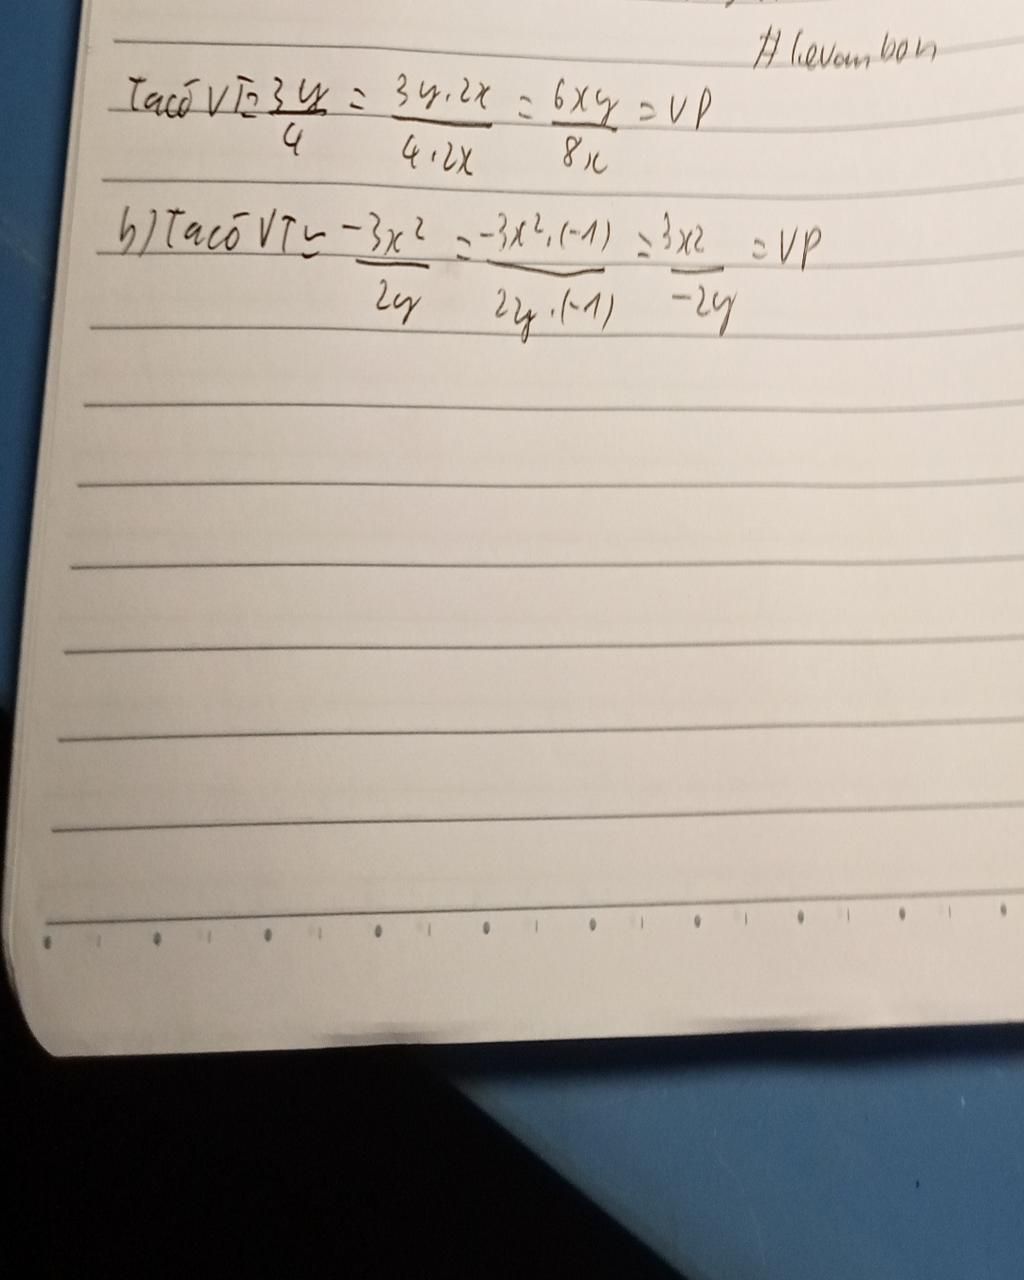 # levanbon
Ta có VT = 3y/4 = 3y.2x/4.2x = 6xy/8x = VP
b) Ta có VT = -3x²/2y = -3x².(-1)/2y.(-1) = 3x2/-2y = VP